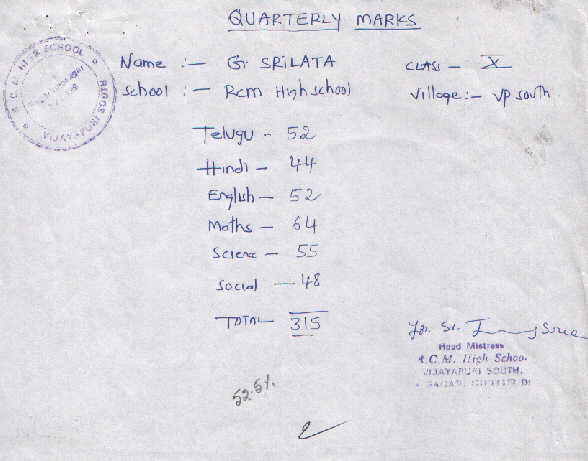 QUARTERLY MARKS
Name :- G. SRILATA CLASS - X
School :- Rcm High school Village :- VP South
Telugu - 52
Hindi - 44
English - 52
Maths - 64
Science - 55
Social - 48
TOTAL 315
Head Mistress
R.C.M. High School
VIJAYAPURI SOUTH.
52.5%